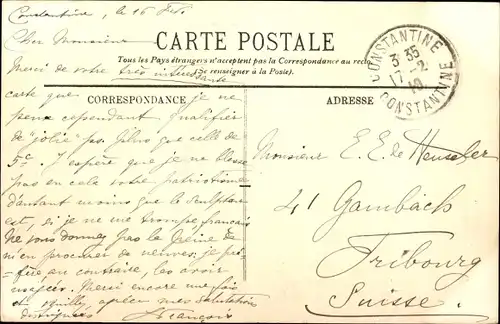 Constantine, le 16 Fév.
Cher Monsieur
CARTE POSTALE
Tous les Pays étrangers n'acceptent pas la Correspondance au recto
(Se renseigner à la Poste).
CONSTANTINE
3 35
17-2
10
CONSTANTINE
Merci de votre très intéressante
CORRESPONDANCE
ADRESSE
carte que je ne
peux cependant qualifier
de "jolie" pas plus que celle de
5c. J'espère que je ne blesse
pas en cela votre patriotisme
d'autant moins que le sculpteur
est, si je ne me trompe français
Ne vous donnez pas la peine de
m'en procurer de neuves, je pré-
fère au contraire, les avoir
usagées. Merci encore une fois
et veuillez agréer mes salutations
distinguées
François
Monsieur E. E. de
41 Gambach
Fribourg
Suisse.